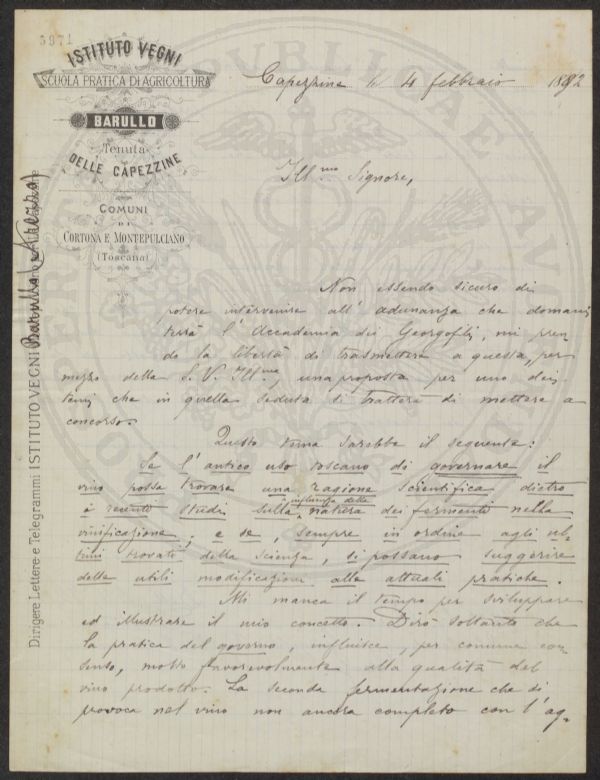 3971
ISTITUTO VEGNI
SCUOLA PRATICA DI AGRICOLTURA
BARULLO
Tenuta
DELLE CAPEZZINE
COMUNI
DI
CORTONA E MONTEPULCIANO
(Toscana)
Dirigere Lettere e Telegrammi ISTITUTO VEGNI Barullo (Arezzo)
Capezzine li 4 febbraio 1892
Ill.mo Signore,
Non essendo sicuro di
potere intervenire all'adunanza che domani
terrà l'Accademia dei Georgofili, mi pren-
do la libertà di trasmettere a questa, per
mezzo della S. V. Ill.ma, una proposta per uno dei
temi che in quella seduta si tratterà di mettere a
concorso.
Questo tema sarebbe il seguente:
Se l'antico uso toscano di governare il
vino possa trovare una ragione scientifica dietro
i recenti studi sulla influenza della natura dei fermenti nella
vinificazione; e se, sempre in ordine agli ul-
timi trovati della scienza, si possano suggerire
delle utili modificazioni alle attuali pratiche.
Mi manca il tempo per sviluppare
ed illustrare il mio concetto. Dirò soltanto che
la pratica del governo, influisce, per comune con-
senso, molto favorevolmente alla qualità del
vino prodotto. La seconda fermentazione che si
provoca nel vino non ancora completo con l'ag-